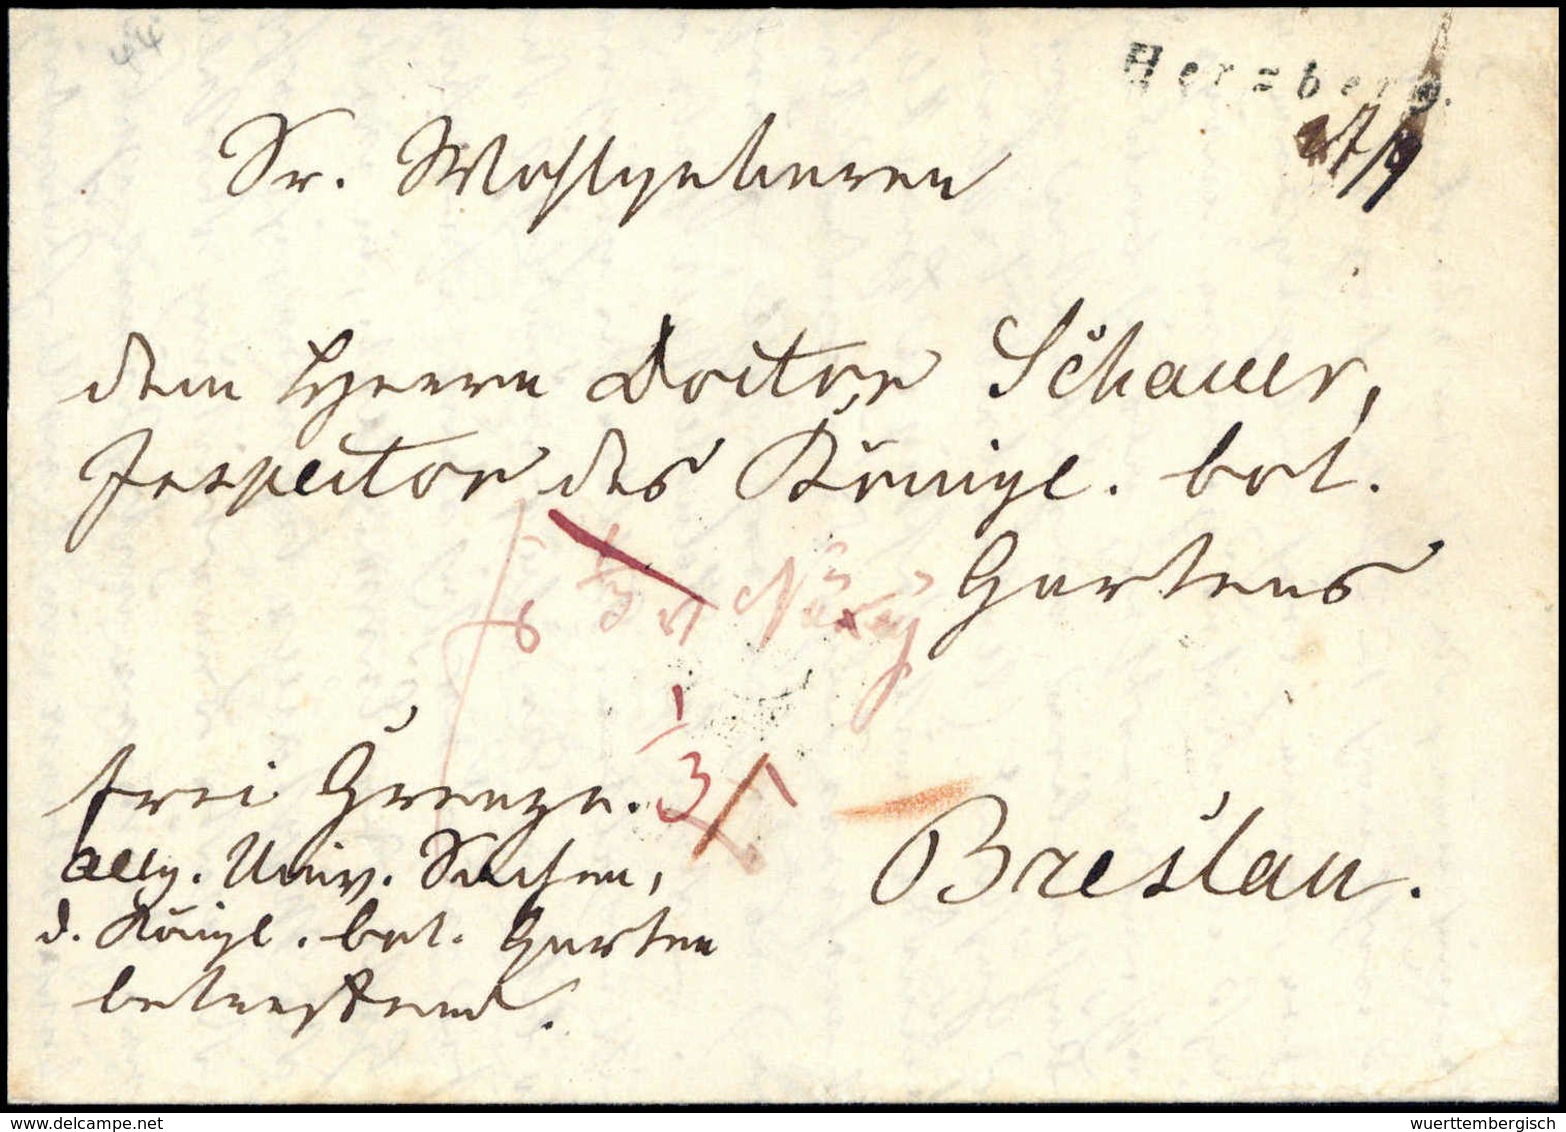 44
Herzberg.
Sr. Wohlgeboren
dem Herrn Doctor Schauer,
Inspector des Königl. bot.
Gartens
1/3
frei Grenze.
Breslau.
allg. Univ. Sachen,
d. Königl. bot. Garten
betreffend.
delcampe.net
wuerttembergisch